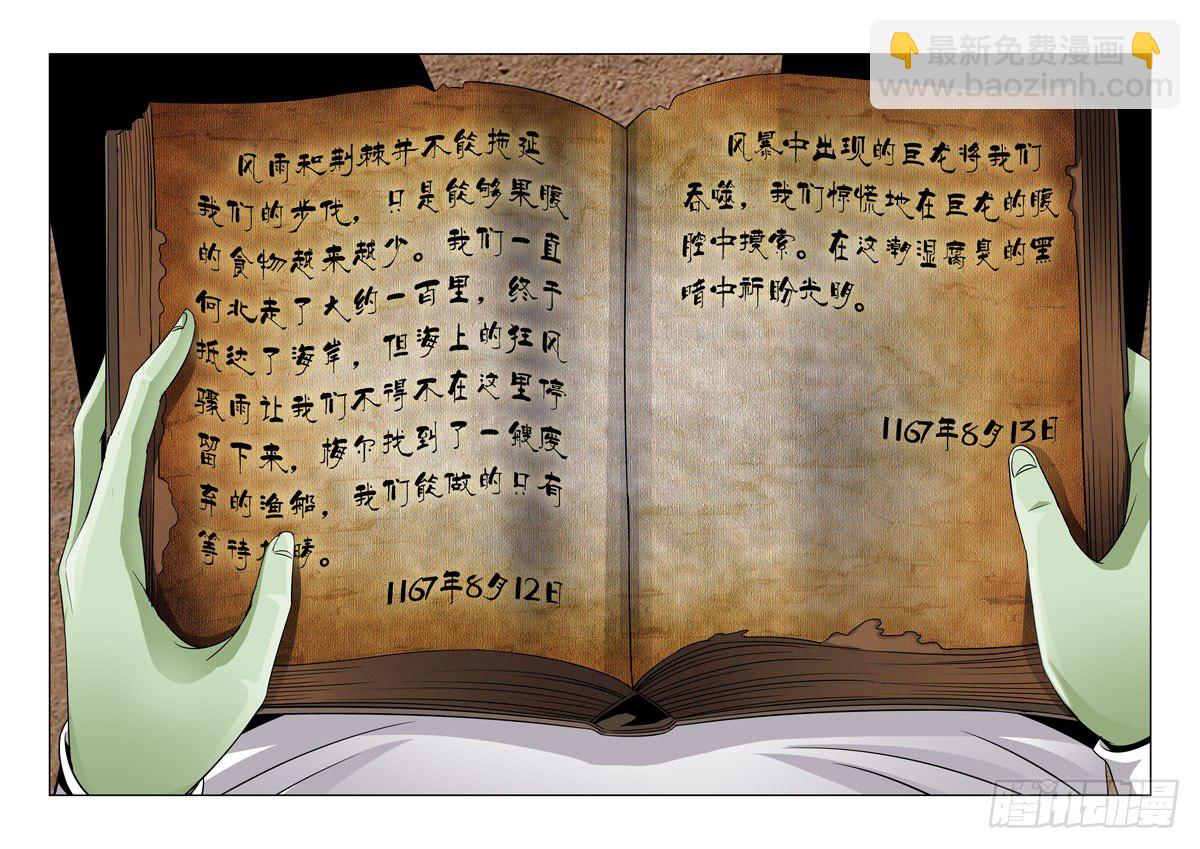 最新免费漫画
www.baozimh.com
风雨和荆棘并不能拖延
我们的步伐，只是能够果腹
的食物越来越少。我们一直
向北走了大约一百里，终于
抵达了海岸，但海上的狂风
骤雨让我们不得不在这里停
留下来，梅尔找到了一艘废
弃的渔船，我们能做的只有
等待 晴。
1167年8月12日
风暴中出现的巨龙将我们
吞噬，我们惊慌地在巨龙的腹
腔中摸索。在这潮湿腐臭的黑
暗中祈盼光明。
1167年8月13日
腾讯动漫